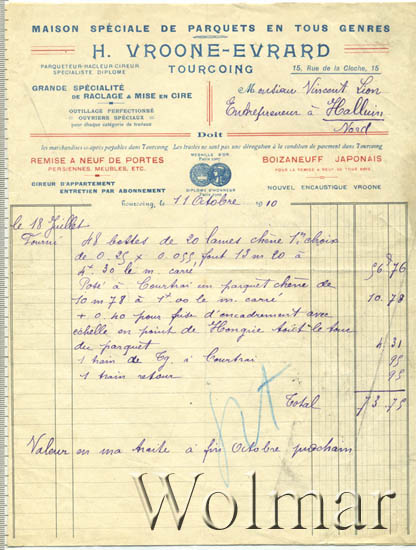 MAISON SPÉCIALE DE PARQUETS EN TOUS GENRES
H. VROONE-EVRARD
TOURCOING
15, Rue de la Cloche, 15
PARQUETEUR-RACLEUR-CIREUR
SPÉCIALISTE DIPLOMÉ
GRANDE SPÉCIALITÉ
DE RACLAGE & MISE EN CIRE
OUTILLAGE PERFECTIONNÉ
OUVRIERS SPÉCIAUX
pour chaque catégorie de travaux
Monsieur Vincent Lion
Entrepreneur à Halluin
Nord
Doit
les marchandises ci-après payables dans Tourcoing
Les traites ne sont pas une dérogation à la condition de paiement dans Tourcoing
REMISE A NEUF DE PORTES
PERSIENNES, MEUBLES, ETC.
CIREUR D'APPARTEMENT
ENTRETIEN PAR ABONNEMENT
MÉDAILLE D'OR
DIPLOME D'HONNEUR
BOIZANEUFF JAPONAIS
POUR LA REMISE A NEUF DE TOUS BOIS
NOUVEL ENCAUSTIQUE VROONE
Tourcoing, le 11 Octobre 1910
le 18 Juillet
Fourni 48 bottes de 20 lames chêne 1er choix
de 0.25 x 0.055, font 13 m 20 à
4f.30 le m. carré 56.76
Posé à Courtrai un parquet chêne de
10 m 78 à 1f00 le m. carré 10.78
+ 0.40 pour frise d'encadrement avec
échelle en point de Hongrie le tout
du parquet 4 31
1 train de Tg à Courtrai 95
1 train retour 95
Total 73.75
Valeur en ma traite à fin Octobre prochain
Wolmar